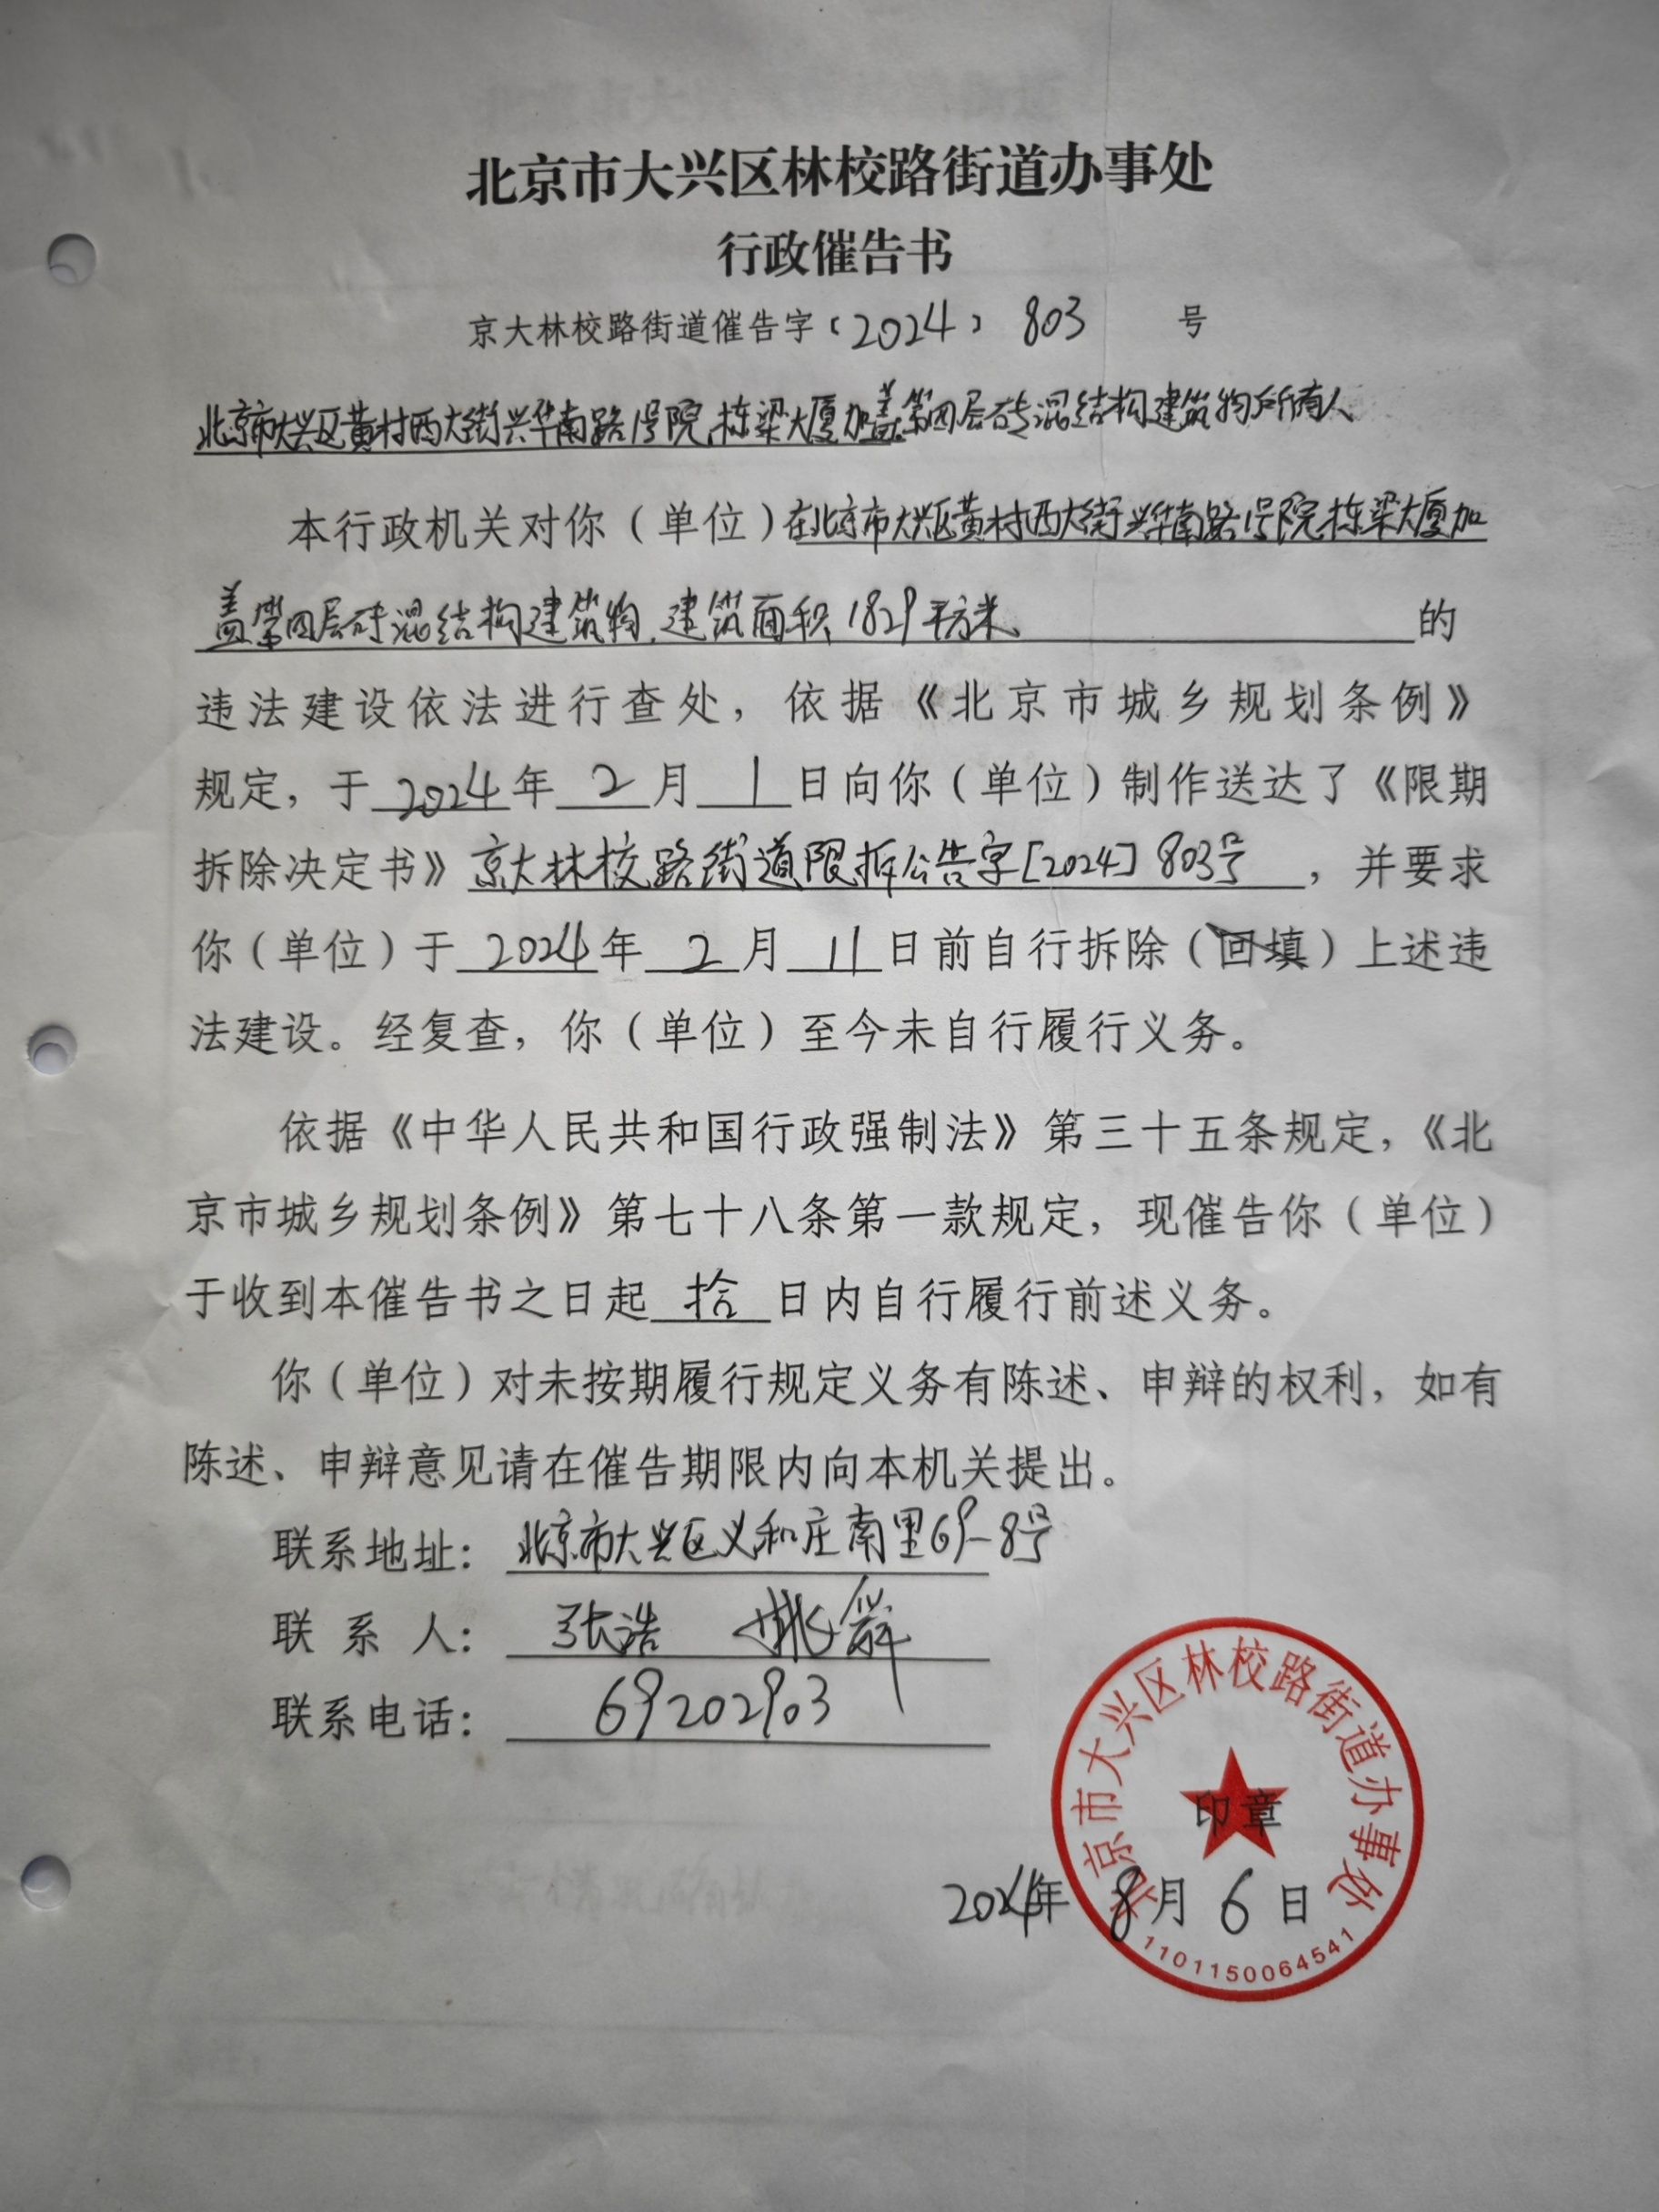 北京市大兴区林校路街道办事处
行政催告书
京大林校路街道催告字〔2024〕803 号
北京市大兴区黄村西大街兴华南路1号院栋梁大厦加盖第四层砖混结构建筑物所有人
本行政机关对你（单位）在北京市大兴区黄村西大街兴华南路1号院栋梁大厦加
盖第四层砖混结构建筑物，建筑面积1829平方米 的
违法建设依法进行查处，依据《北京市城乡规划条例》
规定，于2024年2月1日向你（单位）制作送达了《限期
拆除决定书》京大林校路街道限拆公告字[2024]803号，并要求
你（单位）于2024年2月11日前自行拆除（回填）上述违
法建设。经复查，你（单位）至今未自行履行义务。
依据《中华人民共和国行政强制法》第三十五条规定，《北
京市城乡规划条例》第七十八条第一款规定，现催告你（单位）
于收到本催告书之日起拾日内自行履行前述义务。
你（单位）对未按期履行规定义务有陈述、申辩的权利，如有
陈述、申辩意见请在催告期限内向本机关提出。
联系地址：北京市大兴区义和庄南里69-8号
联系人：张浩 姚
联系电话：69202903
北京市大兴区林校路街道办事处
印章
2024年8月6日
1101150064541